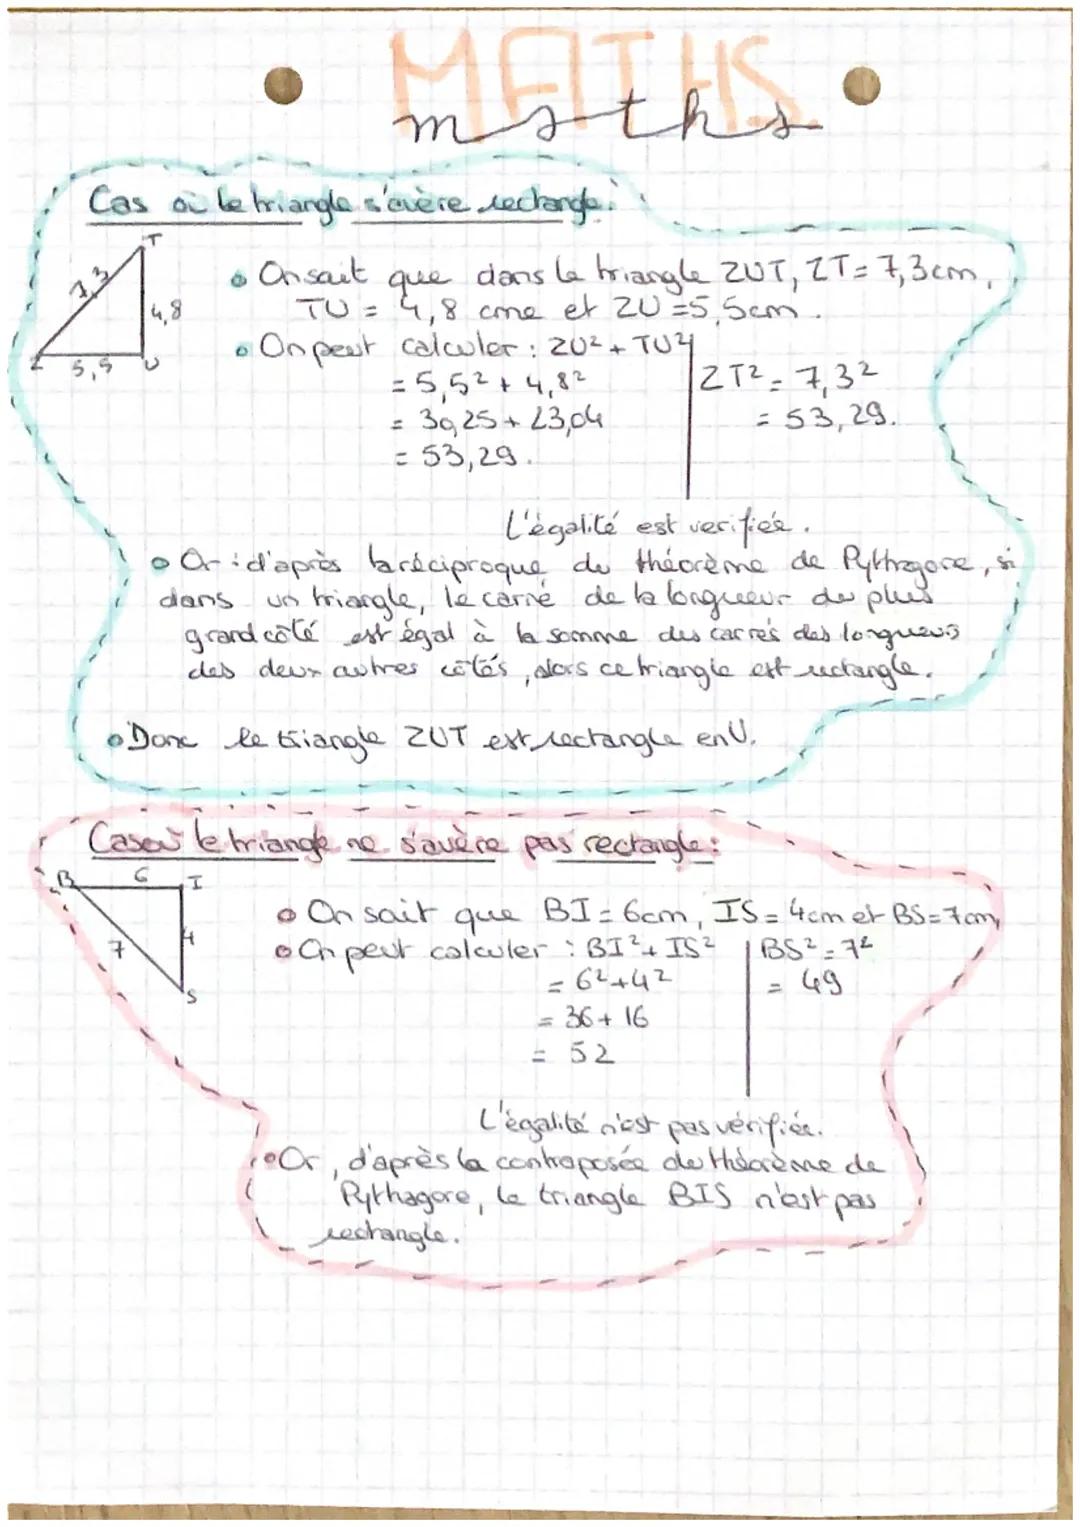 MATHS
maths
Cas où le triangle s'avère rectangle:
T
7,3
4,8
Z 5,5 U
• On sait que dans le triangle ZUT, ZT = 7,3cm,
TU = 4,8 cme et ZU = 5,5cm.
• On peut calculer : ZU² + TU²
= 5,5² + 4,8²
= 30,25 + 23,04
= 53,29.
ZT² = 7,3²
= 53,29.
L'égalité est verifiée.
• Or : d'après la réciproque du théorème de Pythagore, si
dans un triangle, le carré de la longueur du plus
grand côté est égal à la somme des carrés des longueurs
des deux autres côtés, alors ce triangle est rectangle.
• Donc le triangle ZUT est rectangle en U.
Cas où le triangle ne s'avère pas rectangle:
B 6 I
7
4
S
• On sait que BI = 6cm, IS = 4cm et BS = 7cm,
• On peut calculer : BI² + IS²
= 6² + 4²
= 36 + 16
= 52
BS² = 7²
= 49
L'égalité n'est pas vérifiée.
• Or, d'après la contraposée du théorème de
Pythagore, le triangle BIS n'est pas
rectangle.